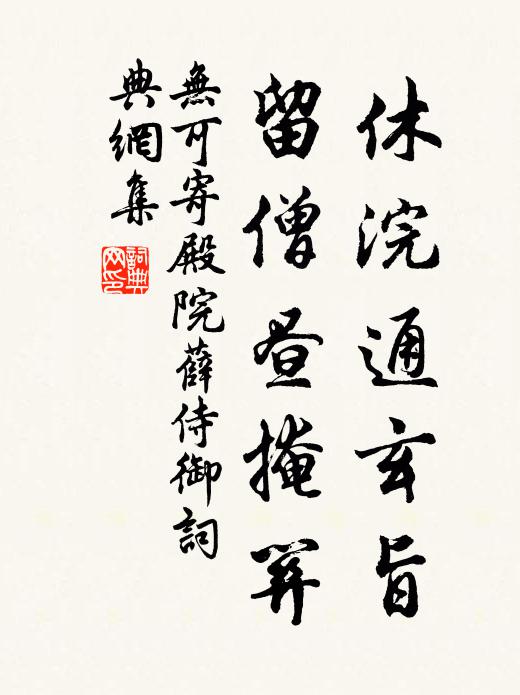 休浣通玄旨
留僧昼掩关
無可寄殿院薛侍御詞
典網集
詞典
网印